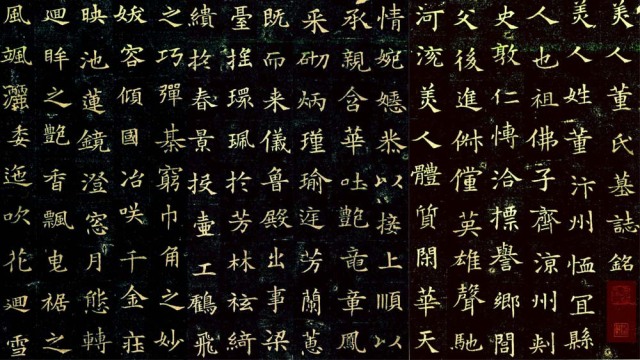 美人董氏墓誌銘
美人姓董汴州恤宜縣
人也祖佛子齊涼州刺
史敦仁博洽標譽鄉閭
父後進俶儻英雄聲馳
河渷美人體質閑華天
情婉嫕恭以接上順以
承親含華吐艷竜章鳳
采砌炳瑾瑜庭芳蘭蕙
既而来儀魯殿出事梁
臺搖環珮於芳林袨綺
繢於春景投壷工鶴飛
之巧彈棊窮巾角之妙
妭容傾國冶咲千金莊
映池蓮鏡澄窓月態轉
迴眸之艷香飄曳裾之
風颯灑委迤吹花迴雪